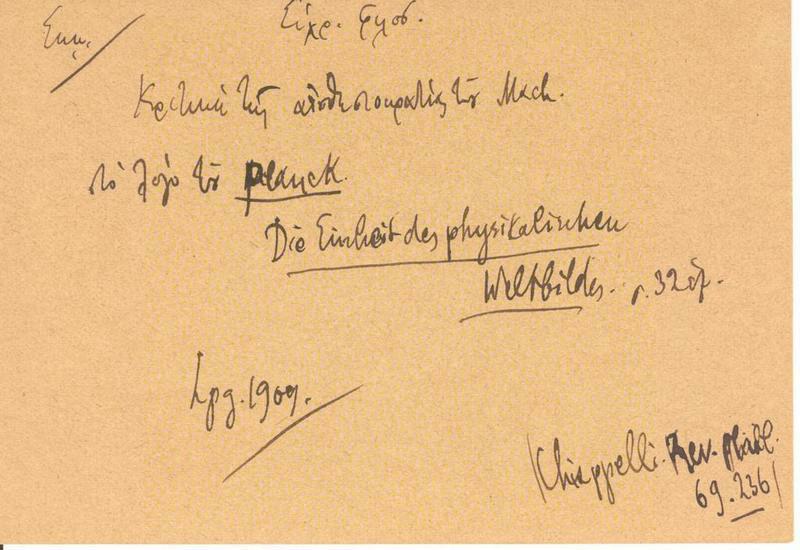 Σημ.
Σύγχρ. φιλοσ.
Κριτική τῆς αἰσθησιοκρατίας τοῦ Mach.
στὸ λόγο τοῦ Planck.
Die Einheit des physikalischen
Weltbildes. σ. 32 ἑξ.
Lpg. 1909.
(Chiappelli. Rev. phil.
69. 236)